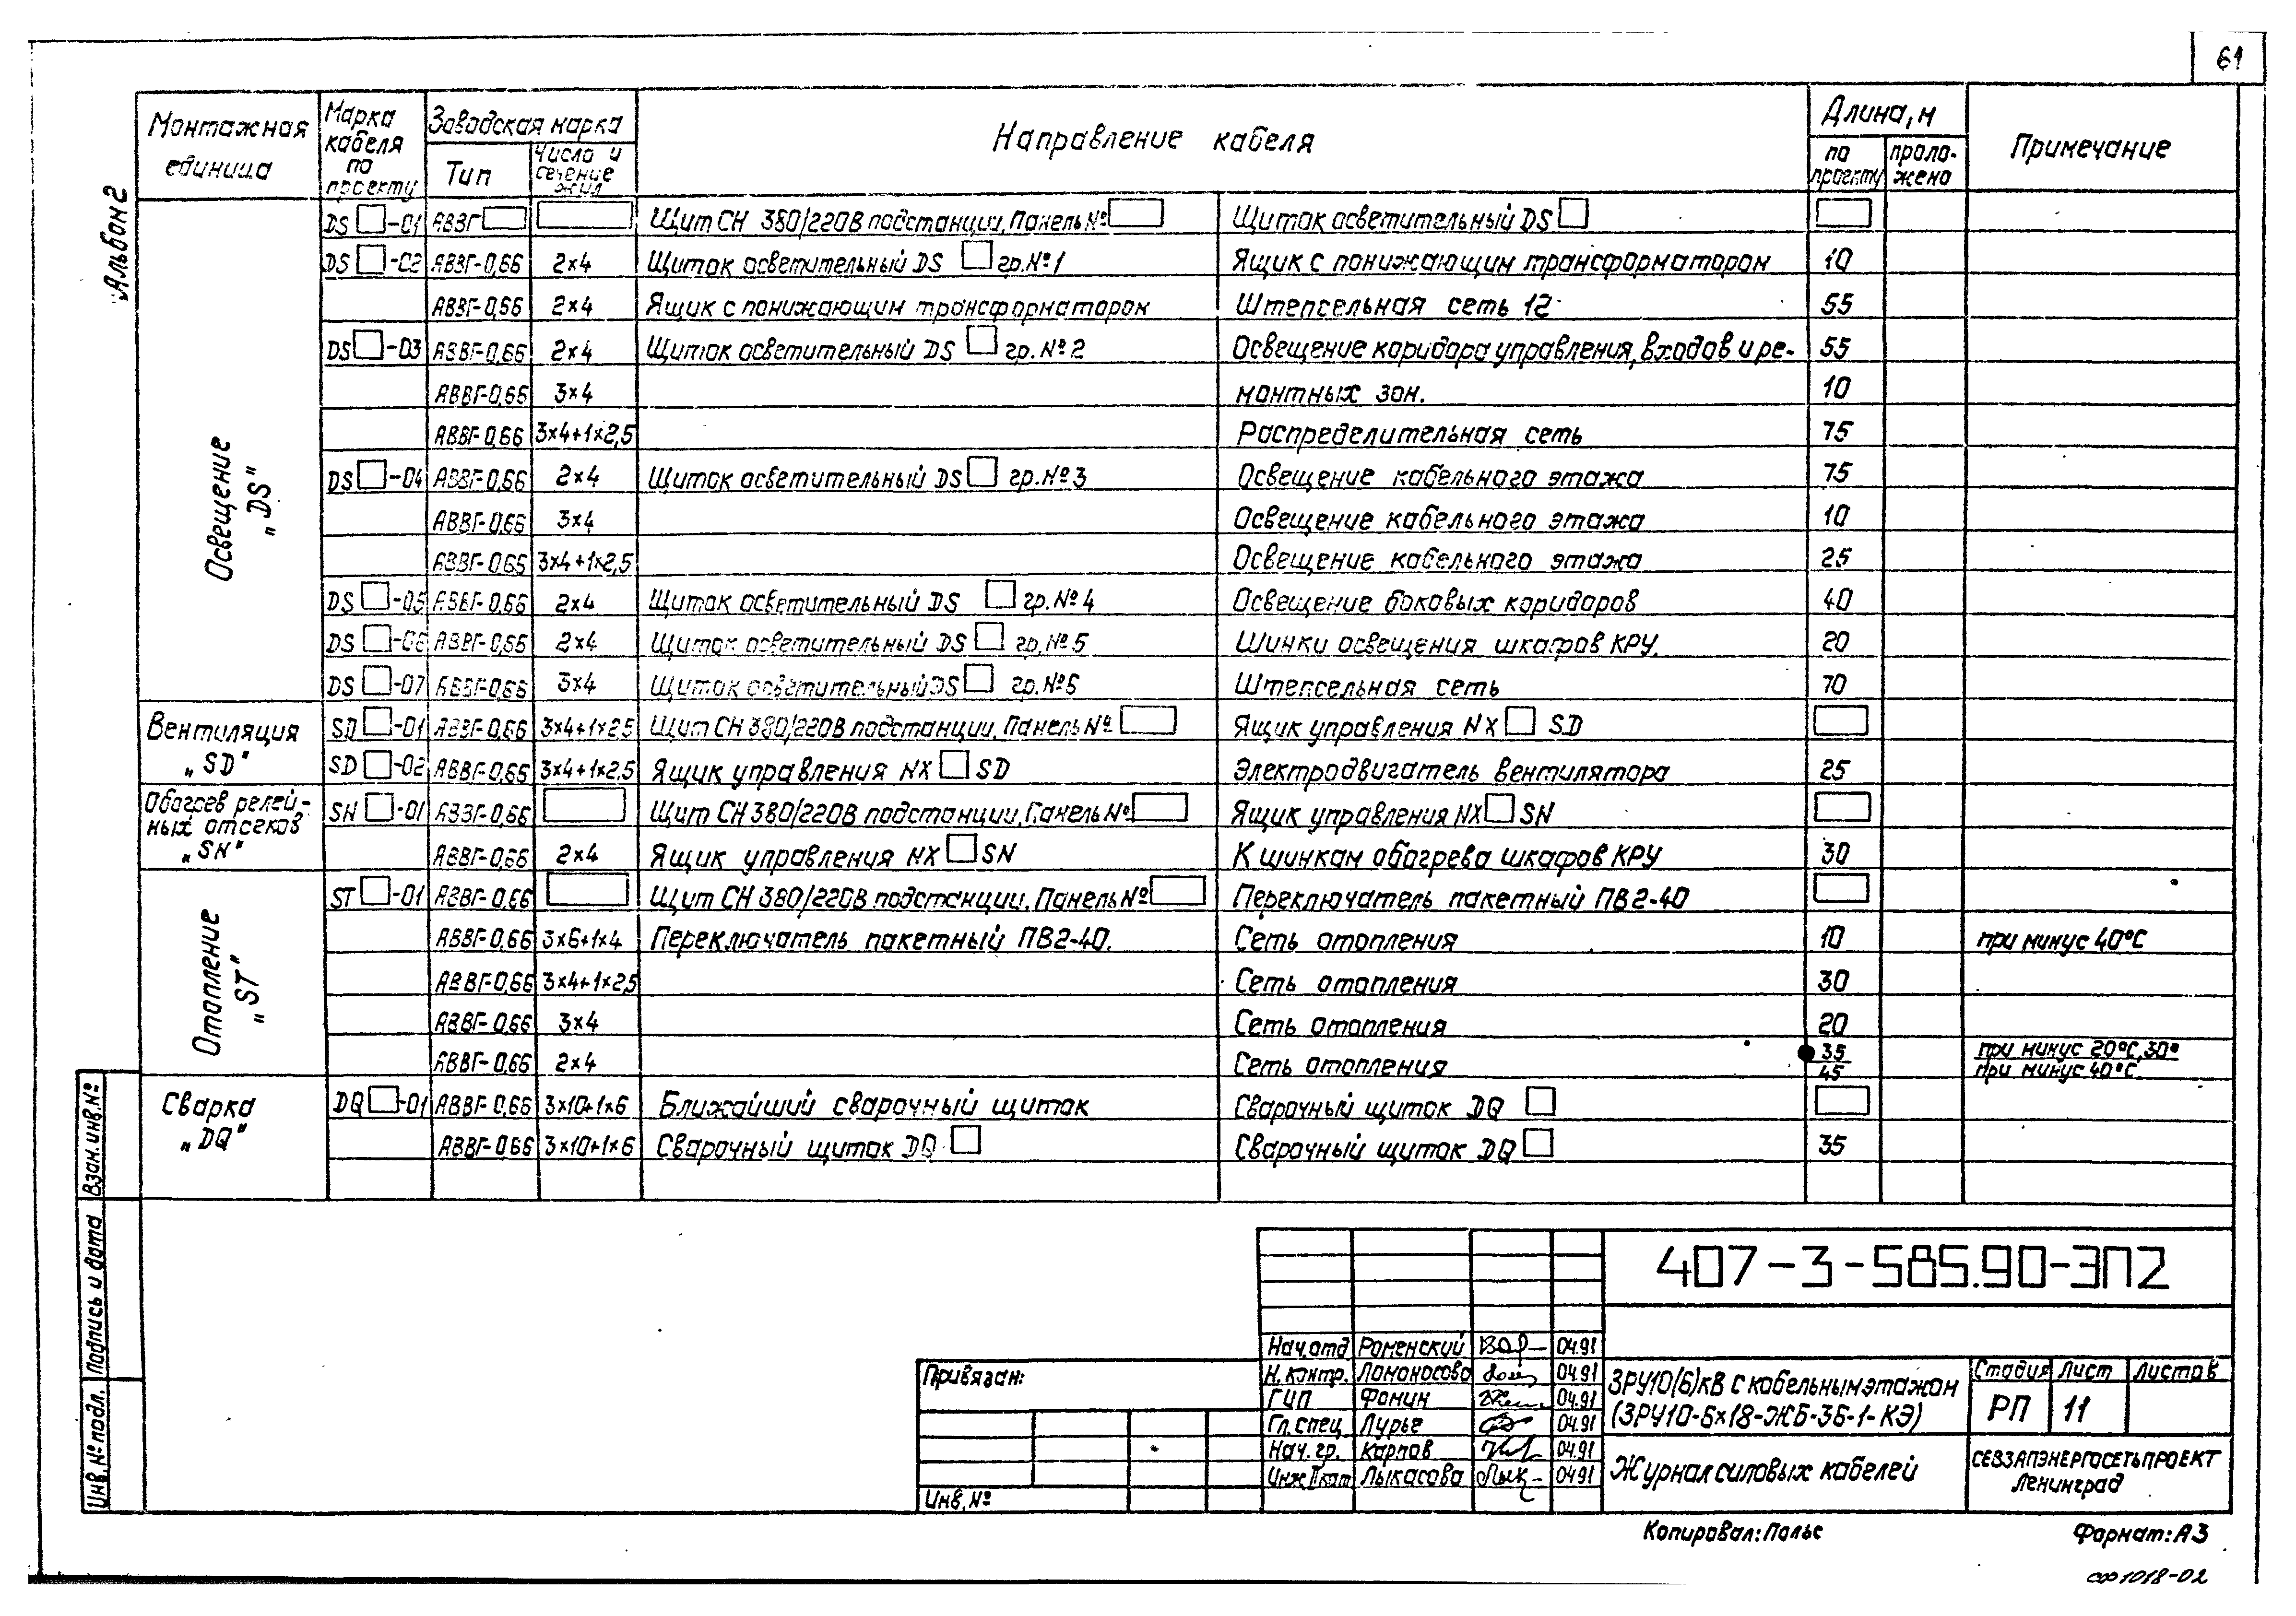 61
Альбом 2
Монтажная единица
Марка кабеля по проекту
Заводская марка
Тип
Число и сечение жил
Направление кабеля
Длина, м
по проекту
проложено
Примечание
Освещение „DS"
DS □-01 АВВГ □ □ Щит СН 380/220В подстанции, Панель № □ Щиток осветительный DS □ □
DS □-02 АВВГ-0,66 2×4 Щиток осветительный DS □ гр. №1 Ящик с понижающим трансформатором 10
АВВГ-0,66 2×4 Ящик с понижающим трансформатором Штепсельная сеть 12 55
DS □-03 АВВГ-0,66 2×4 Щиток осветительный DS □ гр. №2 Освещение коридора управления, входов и ре- 55
АВВГ-0,66 3×4 монтных зон. 10
АВВГ-0,66 3×4+1×2,5 Распределительная сеть 75
DS □-04 АВВГ-0,66 2×4 Щиток осветительный DS □ гр. №3 Освещение кабельного этажа 75
АВВГ-0,66 3×4 Освещение кабельного этажа 10
АВВГ-0,66 3×4+1×2,5 Освещение кабельного этажа 25
DS □-05 АВВГ-0,66 2×4 Щиток осветительный DS □ гр. №4 Освещение боковых коридоров 40
DS □-06 АВВГ-0,66 2×4 Щиток осветительный DS □ гр. №5 Шинки освещения шкафов КРУ. 20
DS □-07 АВВГ-0,66 3×4 Щиток осветительный DS □ гр. №6 Штепсельная сеть 70
Вентиляция „SD"
SD □-01 АВВГ-0,66 3×4+1×2,5 Щит СН 380/220В подстанции, Панель № □ Ящик управления NX □ SD □
SD □-02 АВВГ-0,66 3×4+1×2,5 Ящик управления NX □ SD Электродвигатель вентилятора 25
Обогрев релей-
ных отсеков
„SH"
SH □-01 АВВГ-0,66 □ Щит СН 380/220В подстанции, Панель № □ Ящик управления NX □ SH □
АВВГ-0,66 2×4 Ящик управления NX □ SH К шинкам обогрева шкафов КРУ 30
Отопление „ST"
ST □-01 АВВГ-0,66 □ Щит СН 380/220В подстанции, Панель № □ Переключатель пакетный ПВ2-40 □
АВВГ-0,66 3×6+1×4 Переключатель пакетный ПВ2-40. Сеть отопления 10 при минус 40°С
АВВГ-0,66 3×4+1×2,5 Сеть отопления 30
АВВГ-0,66 3×4 Сеть отопления 20
АВВГ-0,66 2×4 Сеть отопления 35 при минус 20°С, 30°
45 при минус 40°С.
Сварка „DQ"
DQ □-01 АВВГ-0,66 3×10+1×6 Ближайший сварочный щиток Сварочный щиток DQ □ □
АВВГ-0,66 3×10+1×6 Сварочный щиток DQ □ Сварочный щиток DQ □ 35
Взам. инв. №
Подпись и дата
Инв. № подл.
407-3-585.90-ЭП2
Нач. отд Роменский 04.91
Н. контр. Ломоносова 04.91
ГИП Фомин 04.91
Гл. спец Лурье 04.91
Нач. гр. Карпов 04.91
Инж II кат Лыкасова 04.91
Привязан:
Инв. №
ЗРУ10(6)кВ с кабельным этажом
(ЗРУ10-6×18-ЖБ-36-1-КЭ)
Журнал силовых кабелей
Стадия Лист Листов
РП 11
СЕВЗАПЭНЕРГОСЕТЬПРОЕКТ
Ленинград
Копировал: Польс
Формат: А3
сф1018-02